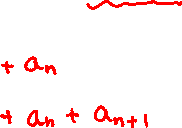 + aₙ
+ aₙ + aₙ₊₁